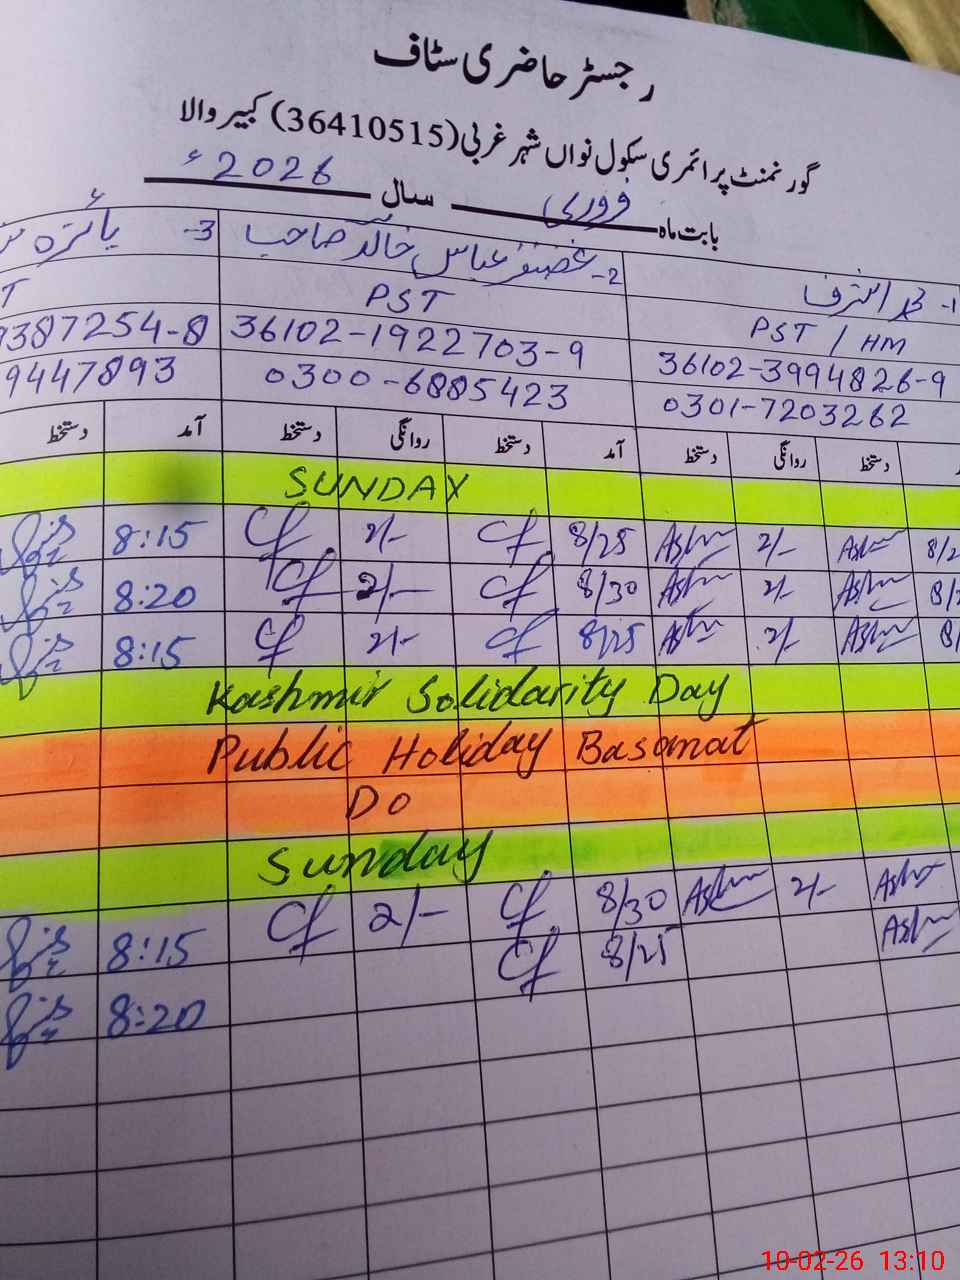 رجسٹر حاضری سٹاف
گورنمنٹ پرائمری سکول نواں شہر غربی (36410515) کبیر والا
بابت ماہ فروری سال 2026ء
1- محمد اشرف 2- غضنفر عباس خالد صاحب 3- یائزہ
PST / HM PST T
36102-3994826-9 36102-1922703-9 9387254-8
0301-7203262 0300-6885423 9447893
دستخط روانگی دستخط آمد دستخط روانگی دستخط آمد دستخط
SUNDAY
8:15 Cf 2/- Cf 8/25 2/- 8/2
8:20 Cf 2/- Cf 8/30 2/- 8/
8:15 Cf 2/- Cf 8/25 2/- 8/
Kashmir Solidarity Day
Public Holiday Basanat
DO
Sunday
8:15 Cf 2/- Cf 8/30 2/-
8:20 Cf 8/25
10-02-26 13:10